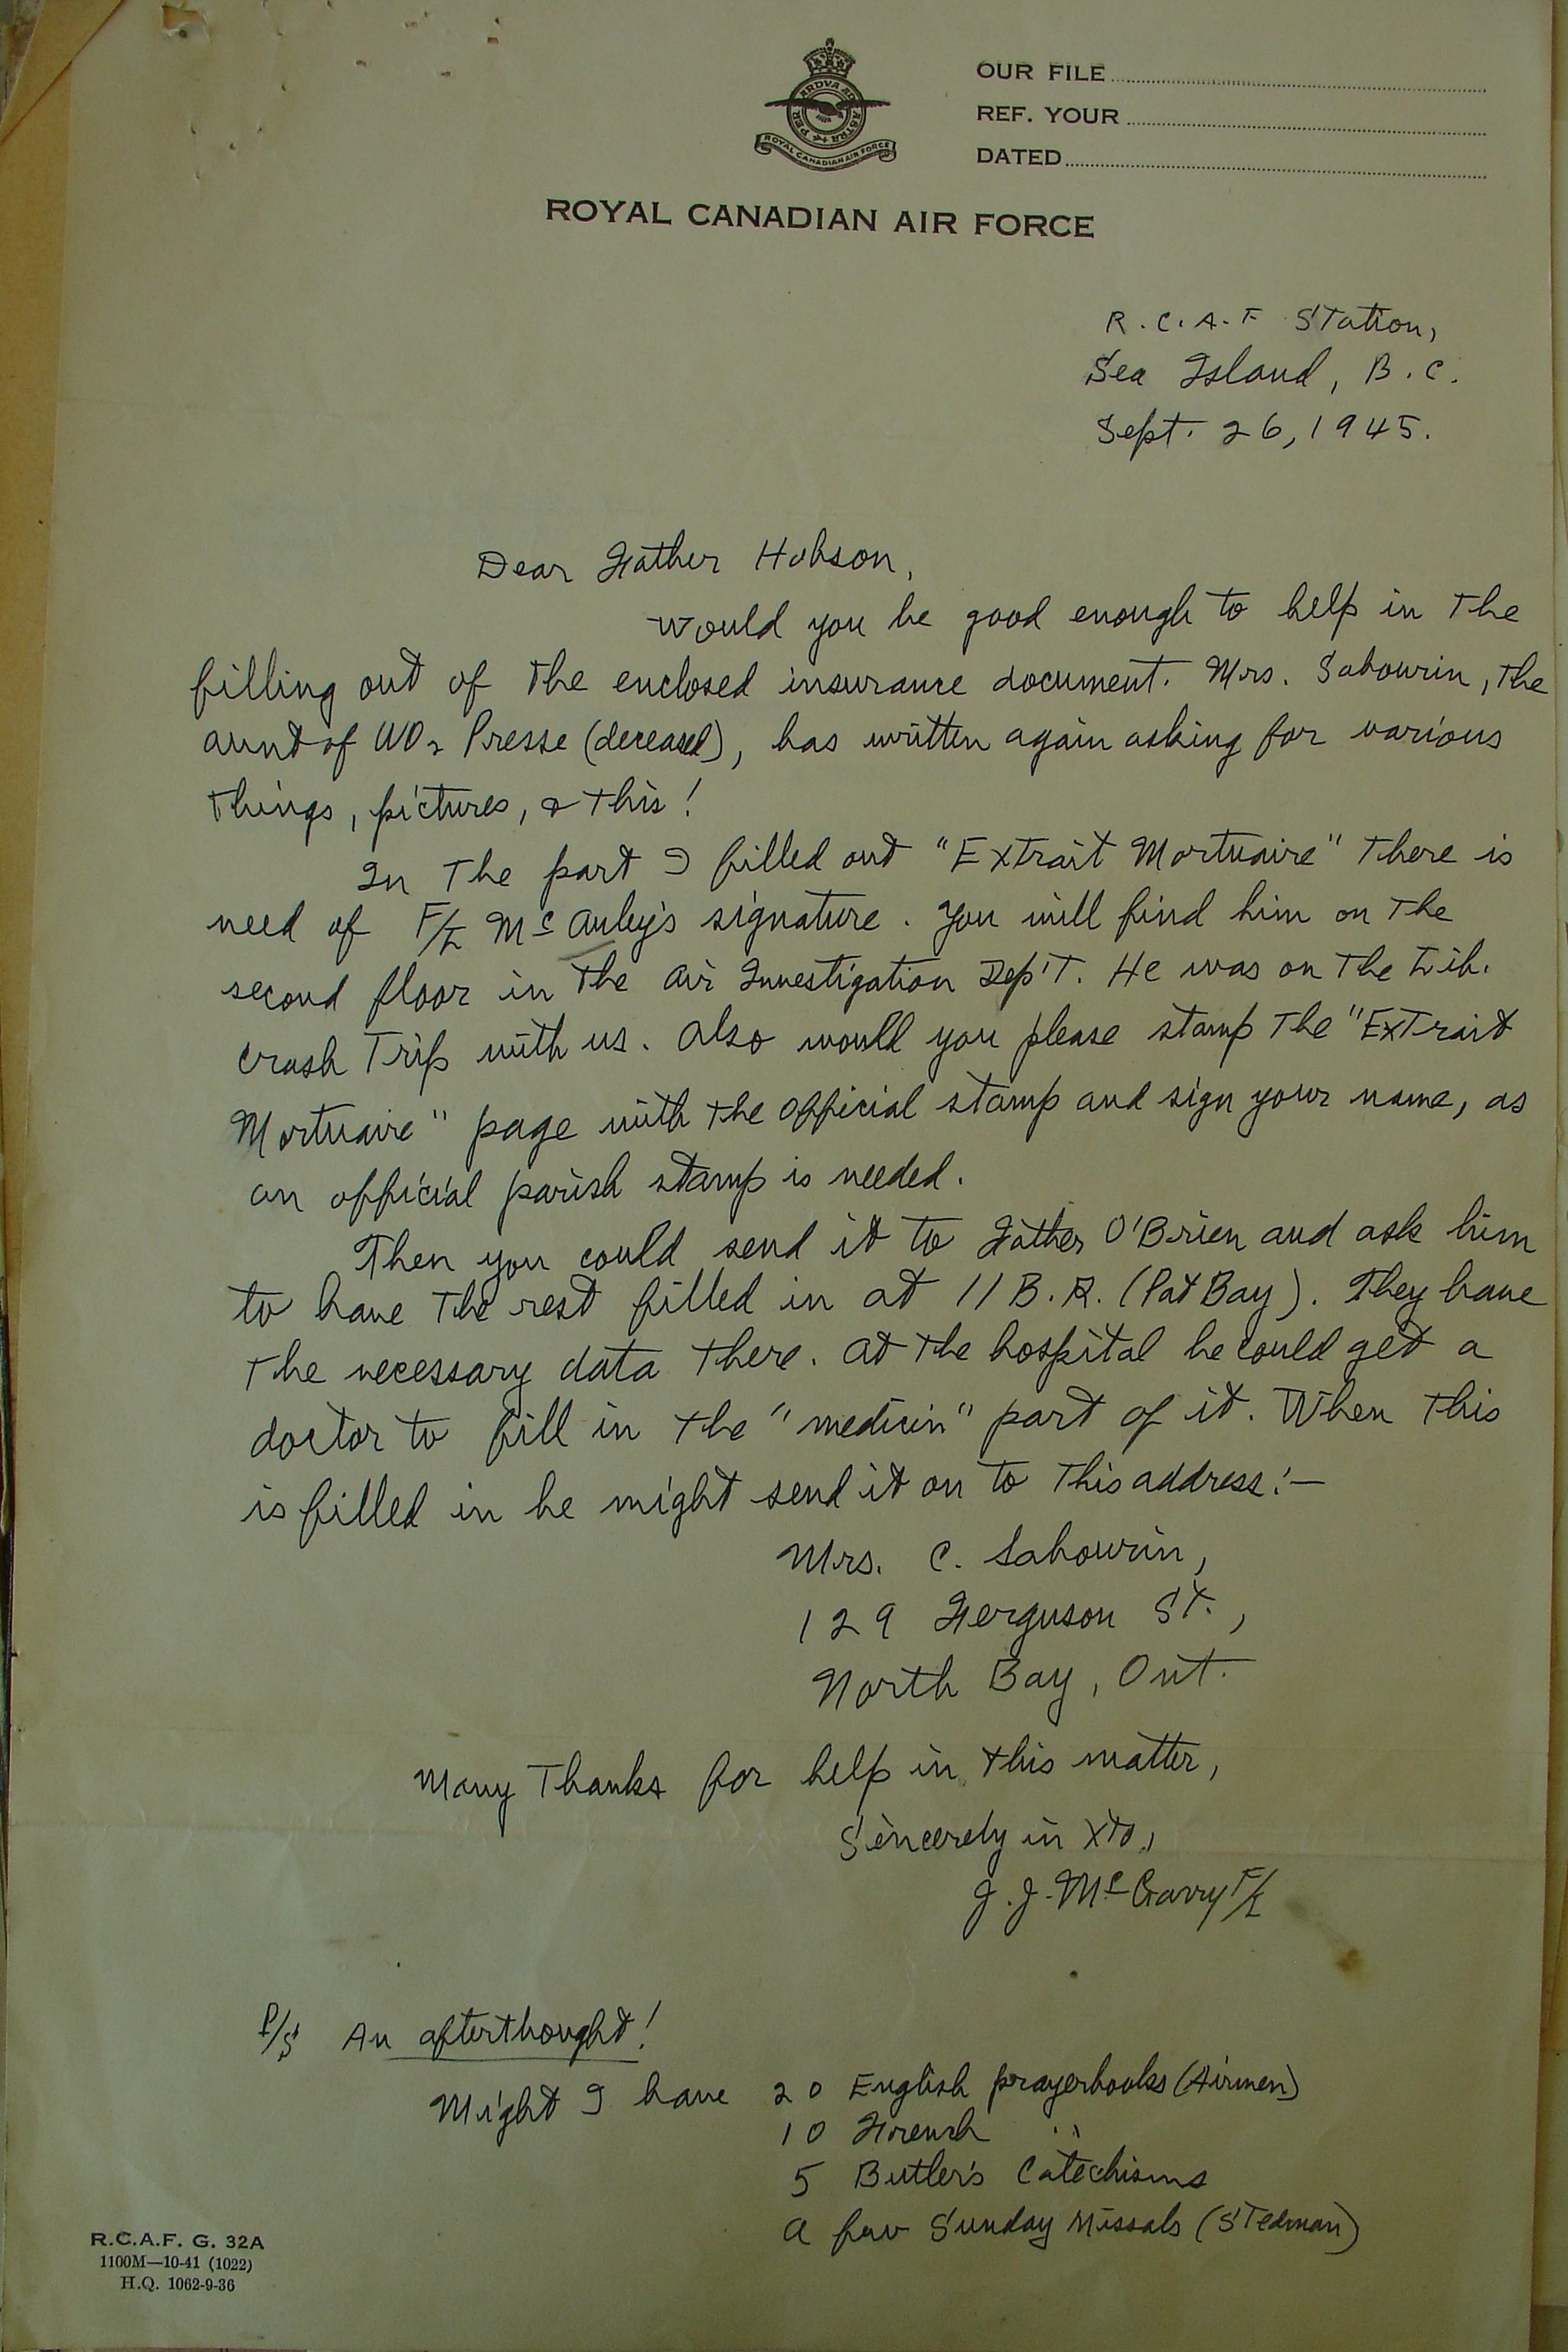 PER ARDVA AD ASTRA
ROYAL CANADIAN AIR FORCE
OUR FILE
REF. YOUR
DATED
ROYAL CANADIAN AIR FORCE
R.C.A.F Station,
Sea Island, B.C.
Sept. 26, 1945.
Dear Father Hobson,
Would you be good enough to help in the
filling out of the enclosed insurance document. Mrs. Sabourin, the
aunt of WO2 Presse (deceased), has written again asking for various
things, pictures, & this!
In the part I filled out "Extrait Mortuaire" there is
need of F/L McAuley's signature. You will find him on the
second floor in the Air Investigation Dep't. He was on the Lib.
crash trip with us. Also would you please stamp the "Extrait
Mortuaire" page with the official stamp and sign your name, as
an official parish stamp is needed.
Then you could send it to Father O'Brien and ask him
to have the rest filled in at 11 B.R. (Pat Bay). They have
the necessary data there. At the hospital he could get a
doctor to fill in the "medicin" part of it. When this
is filled in he might send it on to this address:—
Mrs. C. Sabourin,
129 Ferguson St.,
North Bay, Ont.
Many Thanks for help in this matter,
Sincerely in Xto,
J.J. McGarry F/L
P/S An afterthought!
Might I have 20 English prayerbooks (Airmen)
10 French "
5 Butler's Catechisms
A few Sunday Missals (Stedman)
R.C.A.F. G. 32A
1100M—10-41 (1022)
H.Q. 1062-9-36